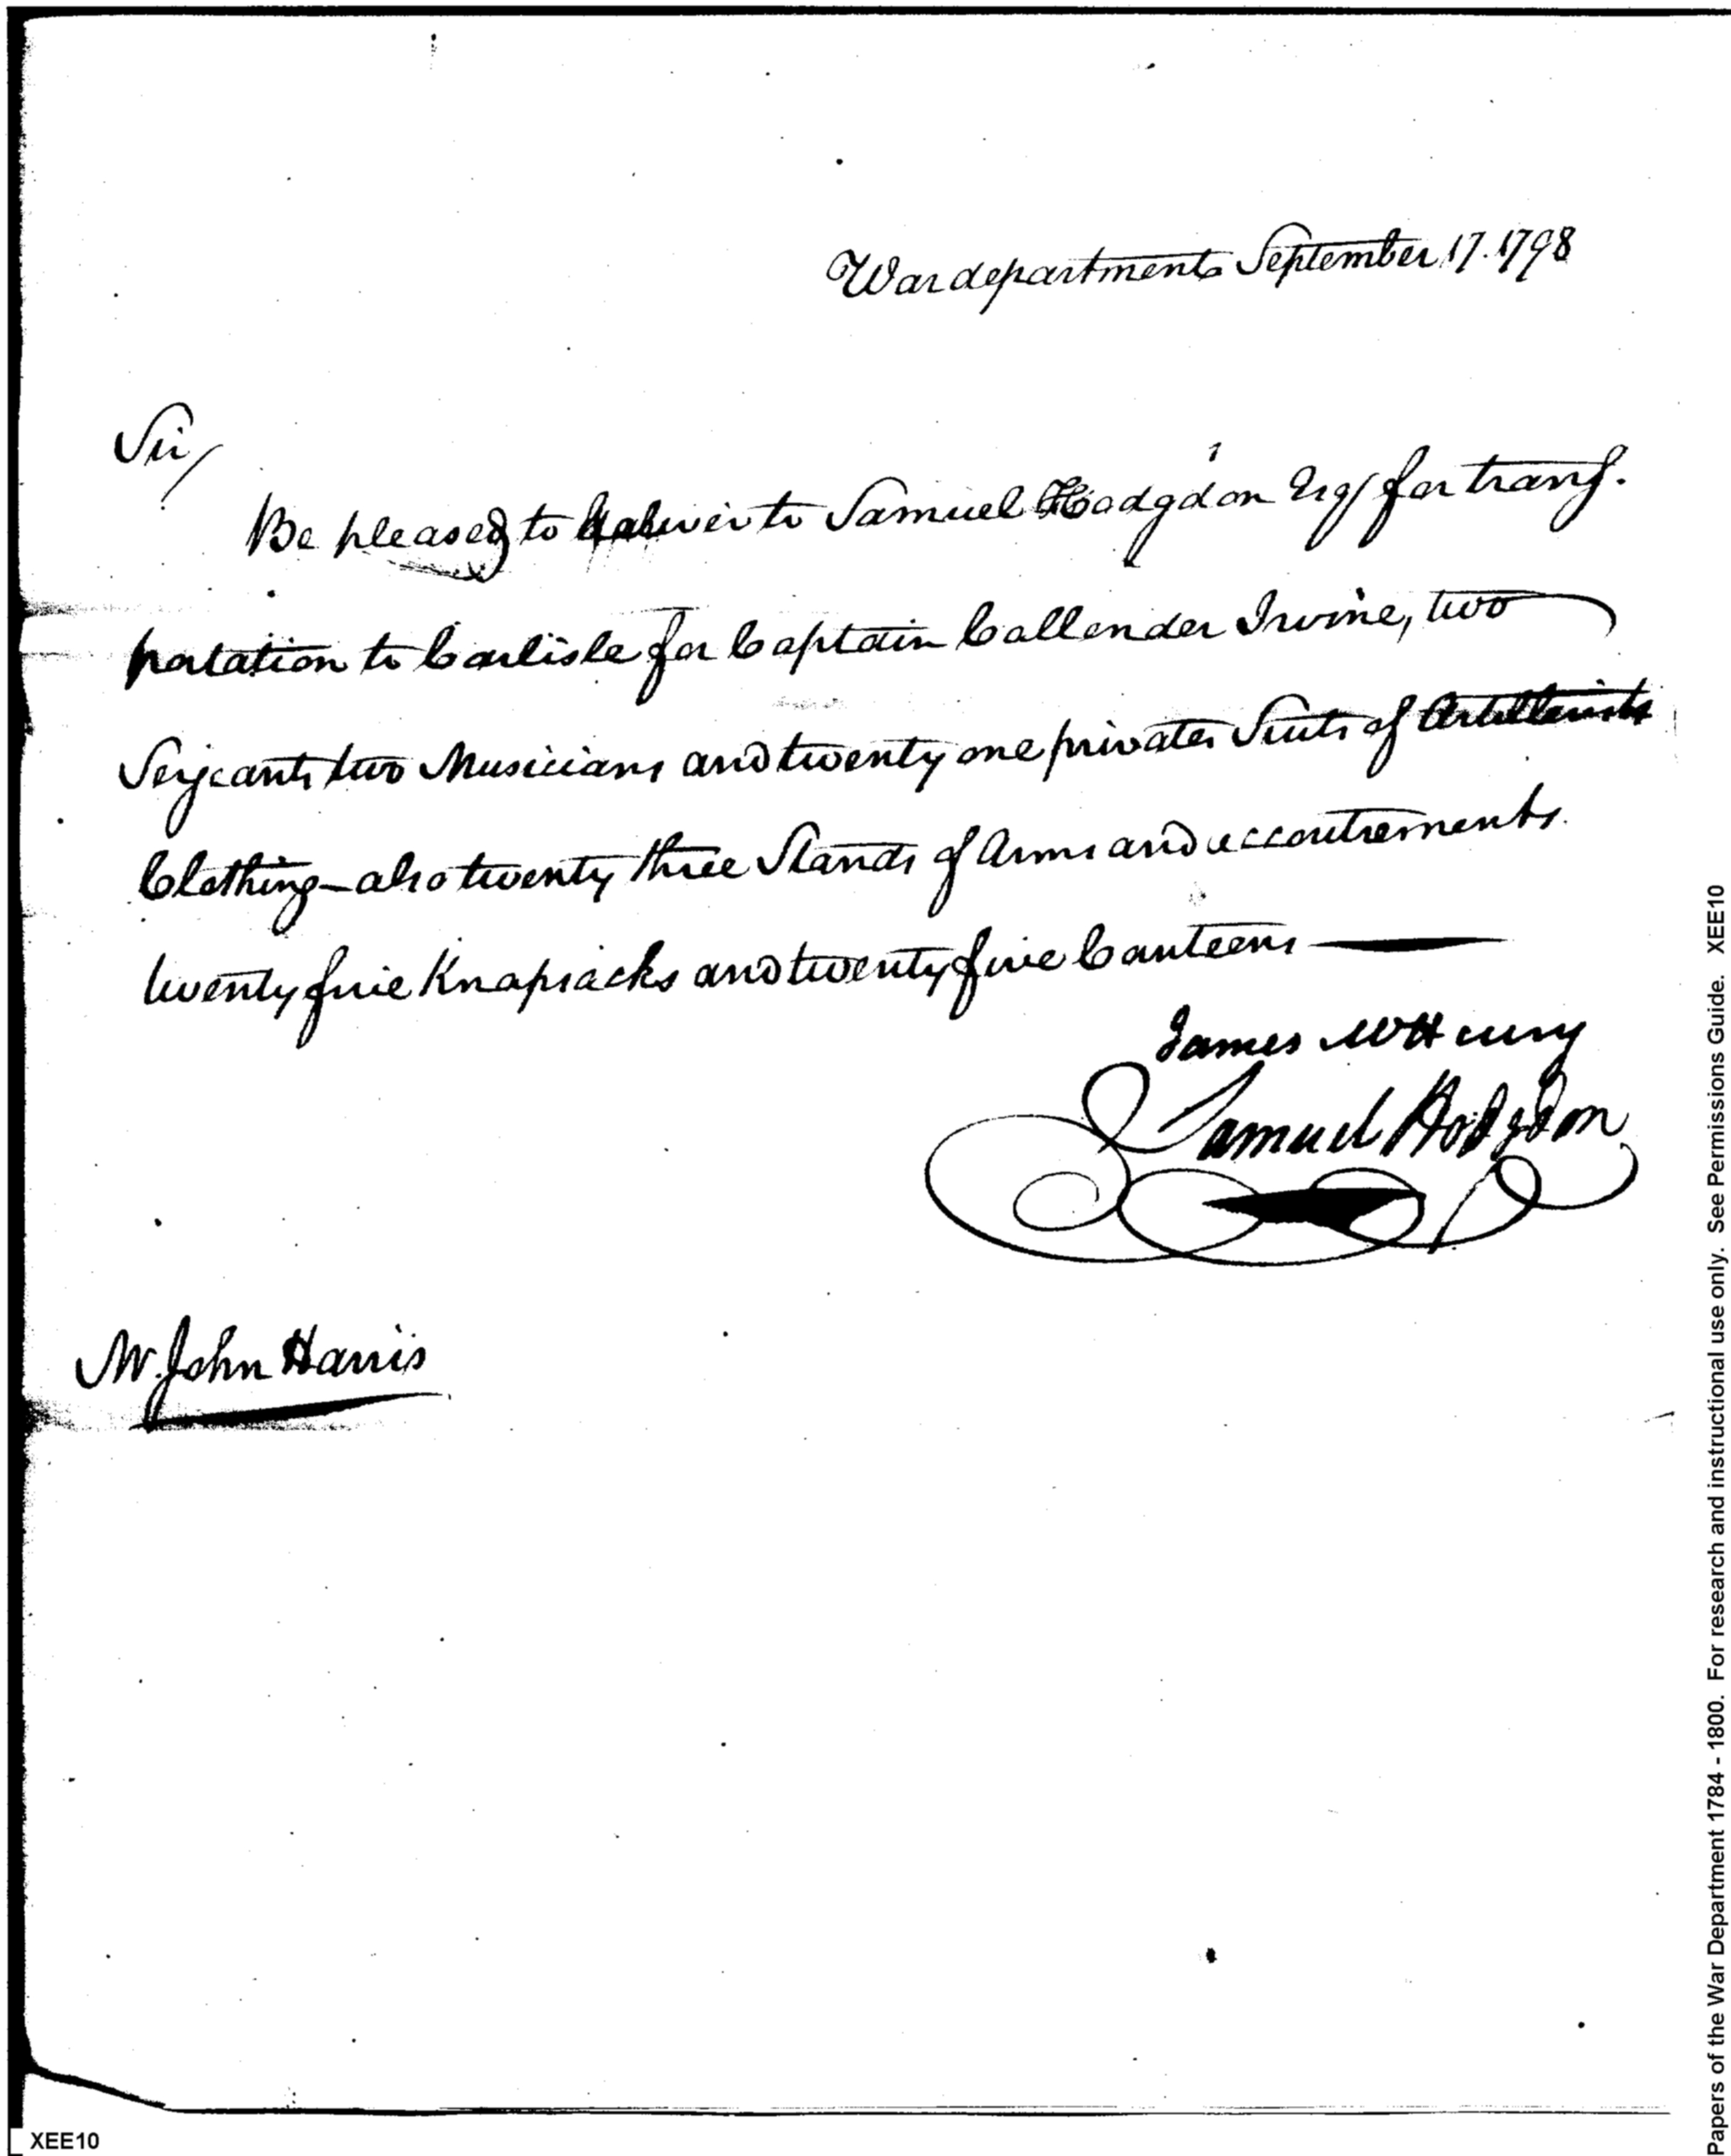 War department September 17. 1798
Sir/
Be pleased to deliver to Samuel Hodgdon Esq/ for trans.
portation to Carlisle for Captain Callender Irvine, two
Serjeants two Musicians and twenty one privates Suits of Artillerists
Clothing – also twenty three Stands of Arms and accoutrements.
twenty five Knapsacks and twenty five Canteens —
James McHenry
Samuel Hodgdon
Mr. John Harris
XEE10
Papers of the War Department 1784 - 1800. For research and instructional use only. See Permissions Guide. XEE10